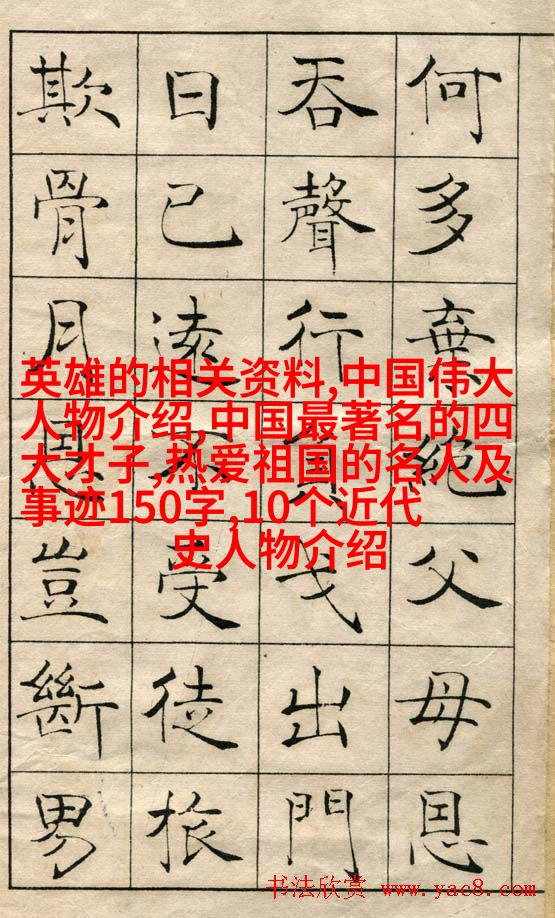 何多棄絕父母恩
吞聲行負戈出門
日已遠不受徒旅
欺骨月恩豈斷男
英雄的相关资料,中国伟大
人物介绍,中国最著名的四
大才子,热爱祖国的名人及
事迹150字,10个近代
史人物介绍
书法欣赏 www.yac8.com